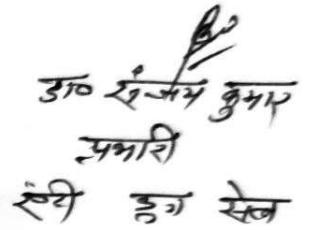 डा० संजय कुमार
प्रभारी
एंटी ड्रग सेल